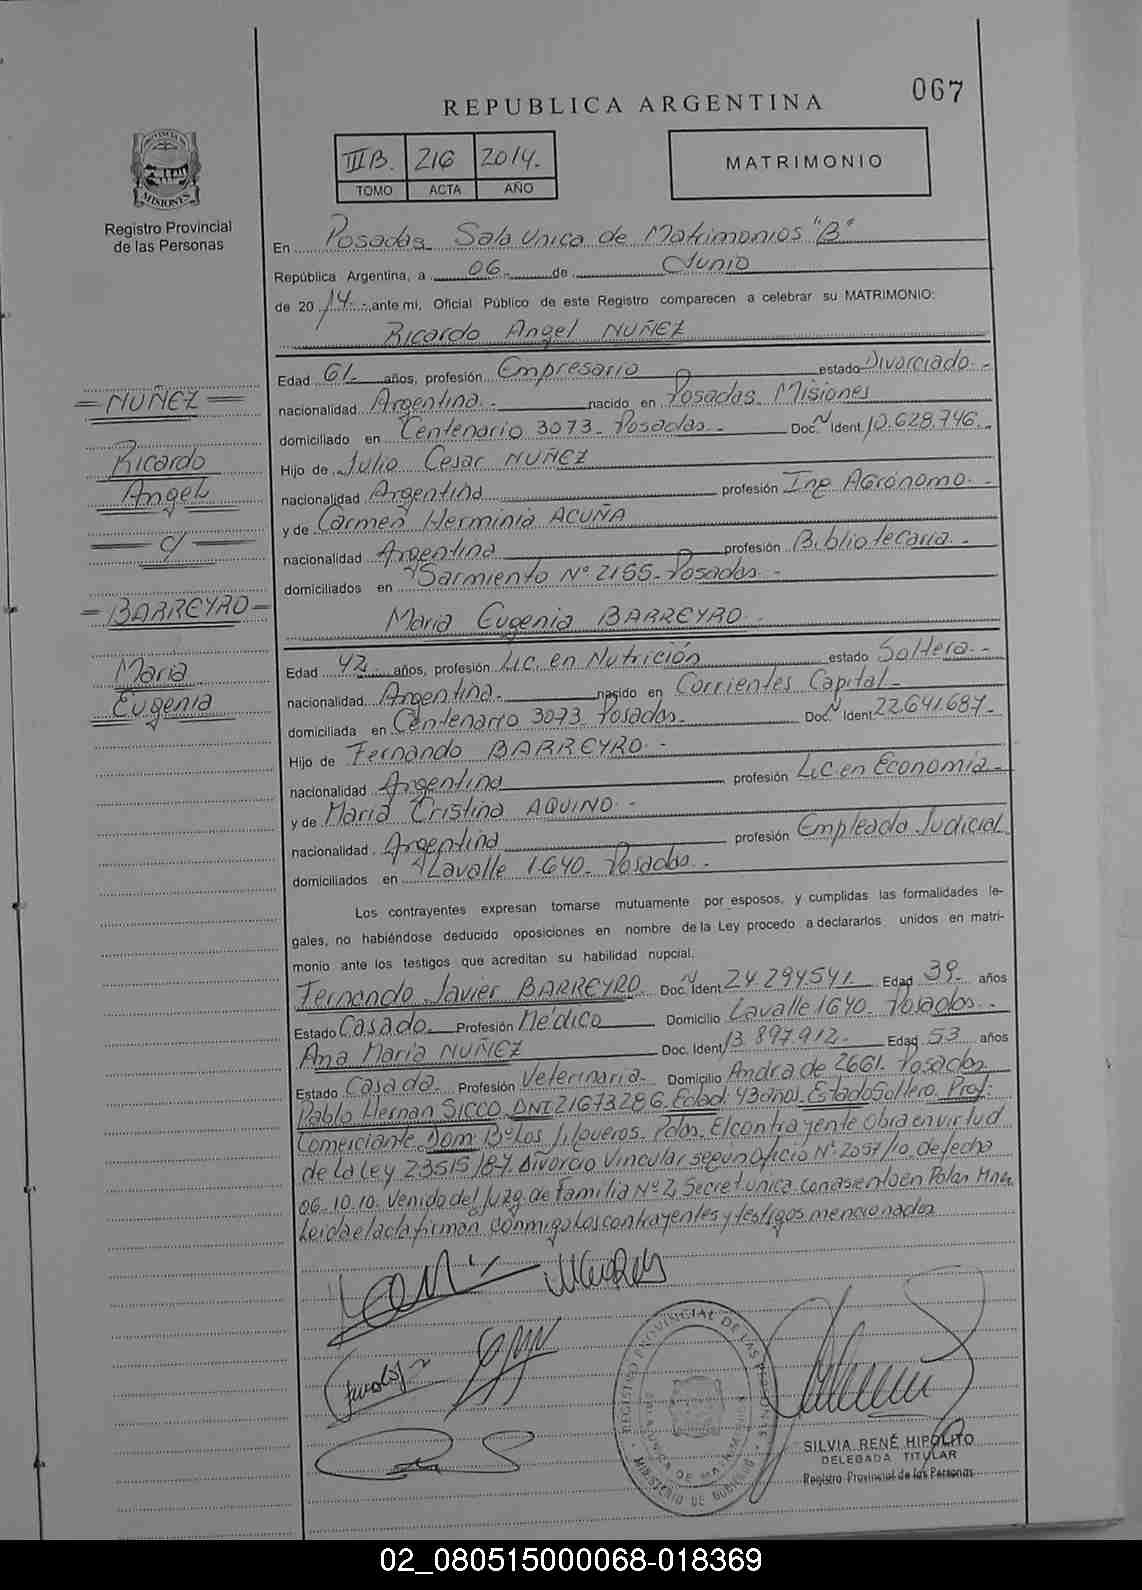 067
REPUBLICA ARGENTINA
PROVINCIA DE
MISIONES
Registro Provincial
de las Personas
III B. 216 2014.-
TOMO ACTA AÑO
MATRIMONIO
En Posadas Sala Unica de Matrimonios "B"
República Argentina, a 06 de Junio
de 2014.- ante mi, Oficial Público de este Registro comparecen a celebrar su MATRIMONIO:
Ricardo Angel NUÑEZ
Edad 61 años, profesión Empresario estado Divorciado.-
nacionalidad Argentina.- nacido en Posadas Misiones
domiciliado en Centenario 3073- Posadas.- Doc. N Ident. 10.628.746.-
Hijo de Julio Cesar NUÑEZ
nacionalidad Argentina profesión Ing Agrónomo.-
y de Carmen Herminia ACUÑA
nacionalidad Argentina profesión Bibliotecaria.-
domiciliados en Sarmiento Nº 2155- Posadas.-
=NUÑEZ=
Ricardo
Angel
- c/ -
=BARREYRO=
Maria
Eugenia
Maria Eugenia BARREYRO.-
Edad 42 años, profesión Lic. en Nutrición estado Soltera.-
nacionalidad Argentina.- nacido en Corrientes Capital-
domiciliada en Centenario 3073 Posadas.- Doc. N Ident. 22.641.687-
Hijo de Fernando BARREYRO.-
nacionalidad Argentina profesión Lic en Economia-
y de Maria Cristina AQUINO.-
nacionalidad Argentina profesión Empleada Judicial
domiciliados en Lavalle 1640- Posadas.-
Los contrayentes expresan tomarse mutuamente por esposos, y cumplidas las formalidades le-
gales, no habiéndose deducido oposiciones en nombre de la Ley procedo a declararlos unidos en matri-
monio ante los testigos que acreditan su habilidad nupcial.
Fernando Javier BARREYRO Doc. N Ident 24.294.541. Edad 39 años
Estado Casado Profesión Médico Domicilio Lavalle 1640- Posadas.-
Ana Maria NUÑEZ Doc. Ident 13.897.912- Edad 53 años
Estado Casada. Profesión Veterinaria- Domicilio Andrade 2661. Posadas
Pablo Hernan SICCO DNI 21673286 Edad: 43 años. Estado Soltero. Prof:
Comerciante. Dom: Bº Los Jilgueros. Pdas. El contrayente Obra en virtud
de la Ley 23515/87. Divorcio Vincular segun Oficio Nº 2057/10 de fecha
06.10.10. Venido del Juzg. de Familia Nº 2, Secret. unica con asiento en Pdas Mnes
Leida el acta firman conmigo los contrayentes y testigos mencionados
REGISTRO PROVINCIAL DE LAS PERSONAS
MINISTERIO DE GOBIERNO
SILVIA RENÉ HIPOLITO
DELEGADA TITULAR
Registro Provincial de las Personas
02_080515000068-018369